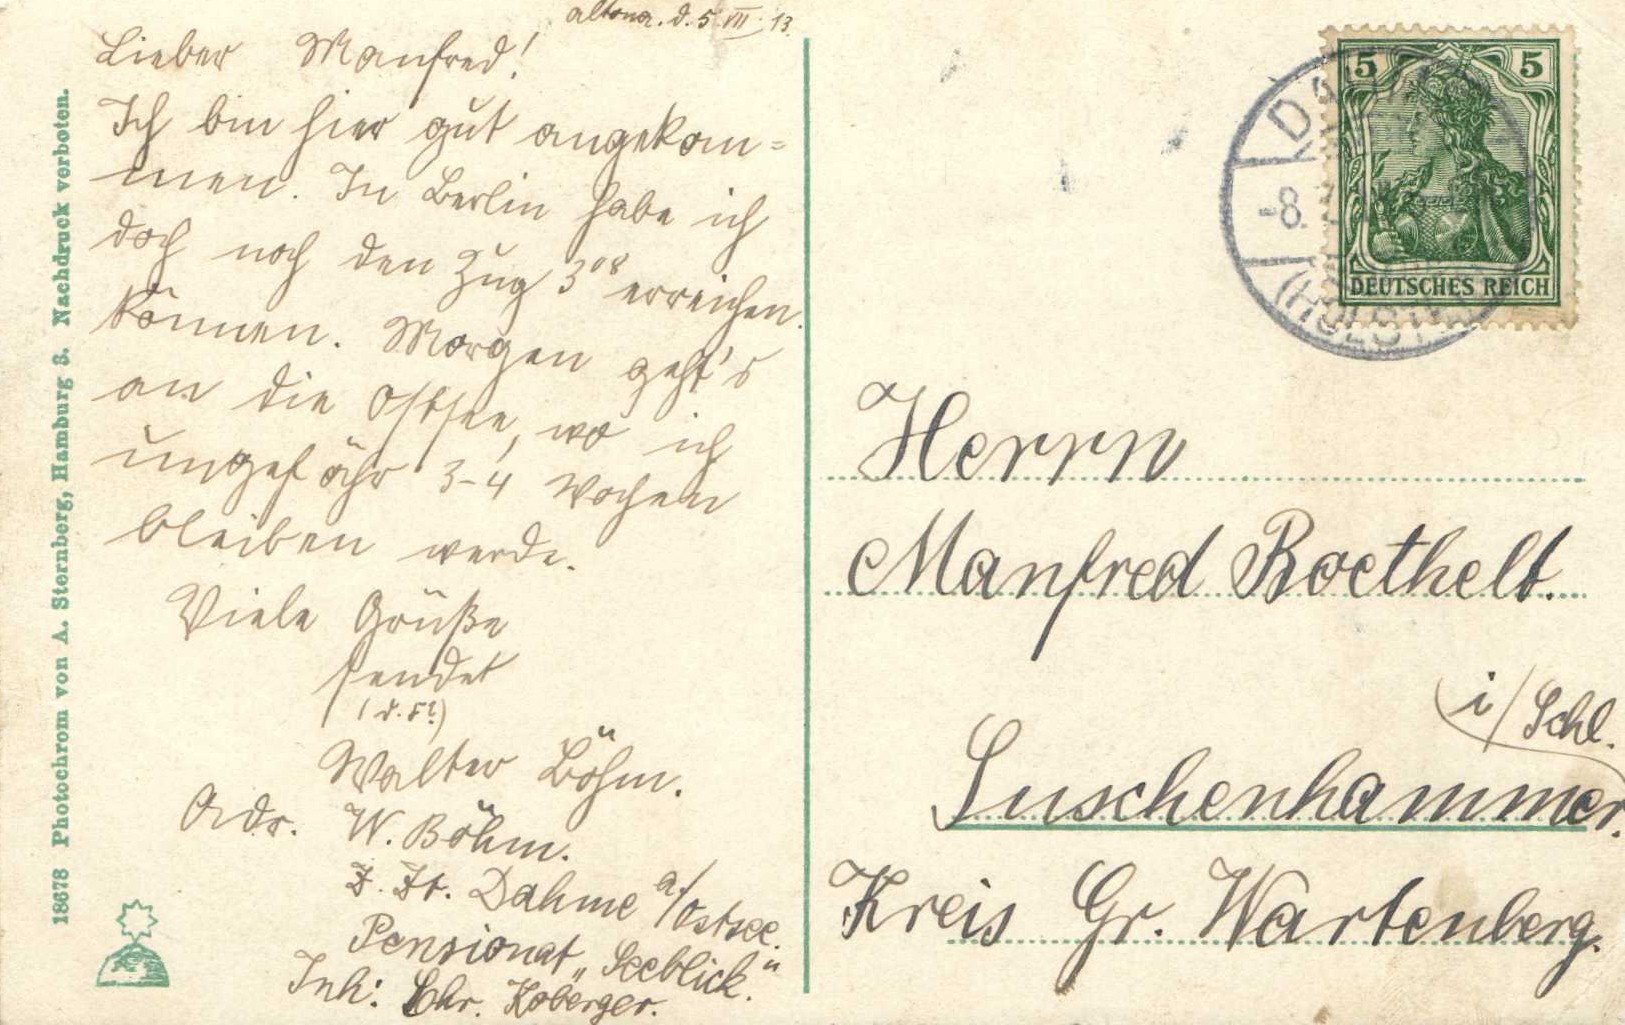 Altona. d. 5 VII. 13.
Lieber Manfred!
Ich bin hier gut angekom=
men. In Berlin habe ich
doch noch den Zug 3⁰⁸ erreichen
können. Morgen geht's
an die Ostsee, wo ich
ungefähr 3-4 Wochen
bleiben werde.
Viele Grüße
sendet
Walter Böhm.
Adr. W. Böhm.
z. Zt. Dahme a/Ostsee.
Pensionat „Seeblick."
Inh: Chr. Koberger.
18678 Photochrom von A. Sternberg, Hamburg 3. Nachdruck verboten.
5 5
DEUTSCHES REICH
-8.
Herrn
Manfred Boethelt.
i/Schl.
Suschenhammer.
Kreis Gr. Wartenberg.